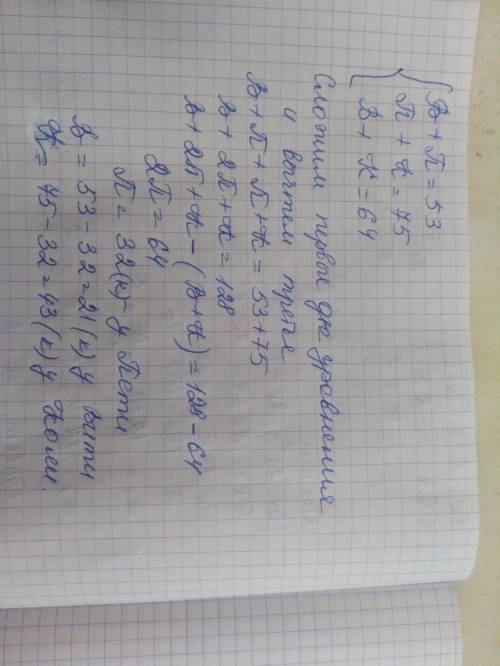 В + П = 53
П + К = 75
В + К = 64
Сложим первые два уравнения
и вычтем третье
В + П + П + К = 53 + 75
В + 2П + К = 128
В + 2П + К – (В + К) = 128 – 64
2П = 64
П = 32 (к) – у Пети
В = 53 – 32 = 21 (к) у Вити
К = 75 – 32 = 43 (к) у Коли.